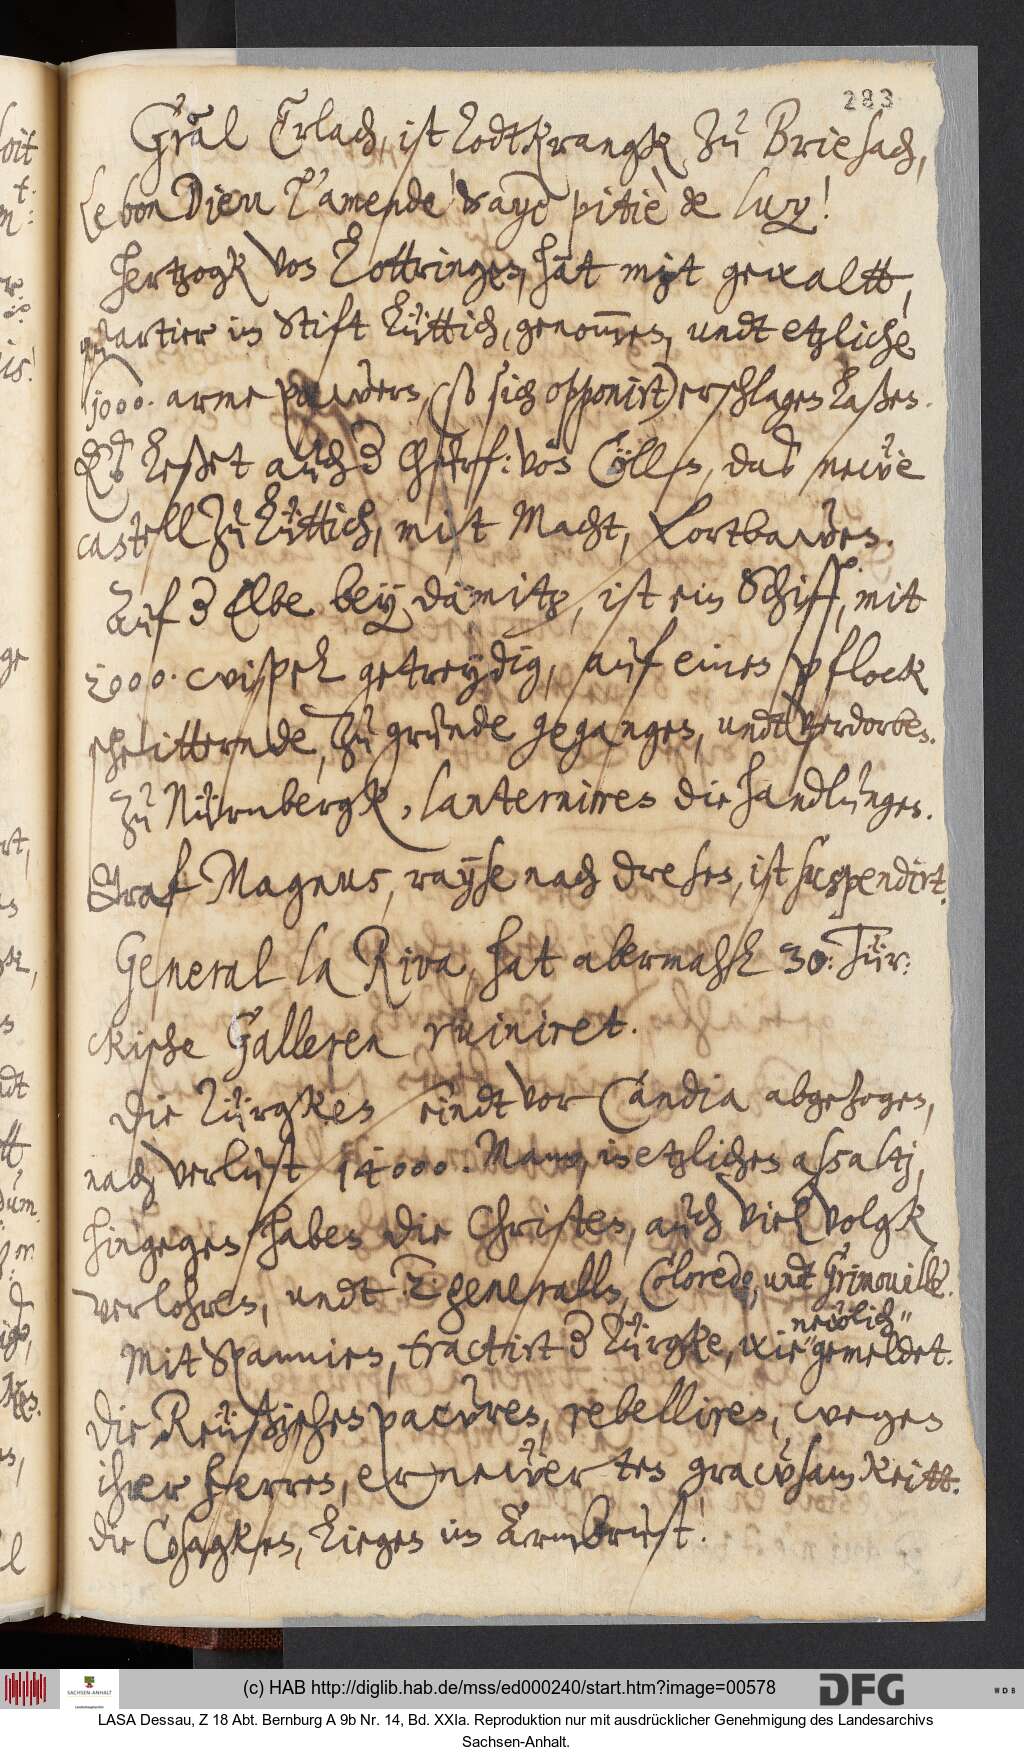 283
Gral Erlach, ist todtkrangk zu Briesach,
Le bon Dieu l'amende! & aye pitié de luy!
Hertzogk von Lottringen, hat mit gewaltt,
quartier im Stift Lüttich, genommen, undt etzliche
1000. arme pawern, (so sich opponirt) erschlagen laßen.
Es leßet auch der Churf: von Cölln, das newe
castell zu Lüttich, mit Macht, fortbawen.
Auf der Elbe bey Dämitz, ist ein Schiff, mit
2000. wispel getreydig, auf einen pflock
scheitternde, zu grunde gegangen, undt verdorben.
Zu Nürnbergk, lanterniren die handlungen.
Graf Magnus, rayse nach Dresen, ist suspendirt.
General la Riva, hat abermahl 30: Tür:
ckische Galleren ruiniret.
Die Türgken seindt vor Candia abgezogen,
nach verlust 14000. Mann, in etzlichen assalti,
hingegen haben die Christen, auch viel volgk
verlohren, undt 2 generalls, Coloredo, undt Grimouille.
Mit Spannien, tractirt der Türgke, wie gemeldet.
newlich
Die Reußischen pawren, rebelliren, wegen
ihrer herren, ernewerten grawsamkeitt.
die Cosagken, liegen im Armbrust!
(c) HAB http://diglib.hab.de/mss/ed000240/start.htm?image=00578
SACHSEN-ANHALT
DFG
WDB
LASA Dessau, Z 18 Abt. Bernburg A 9b Nr. 14, Bd. XXIa. Reproduktion nur mit ausdrücklicher Genehmigung des Landesarchivs
Sachsen-Anhalt.